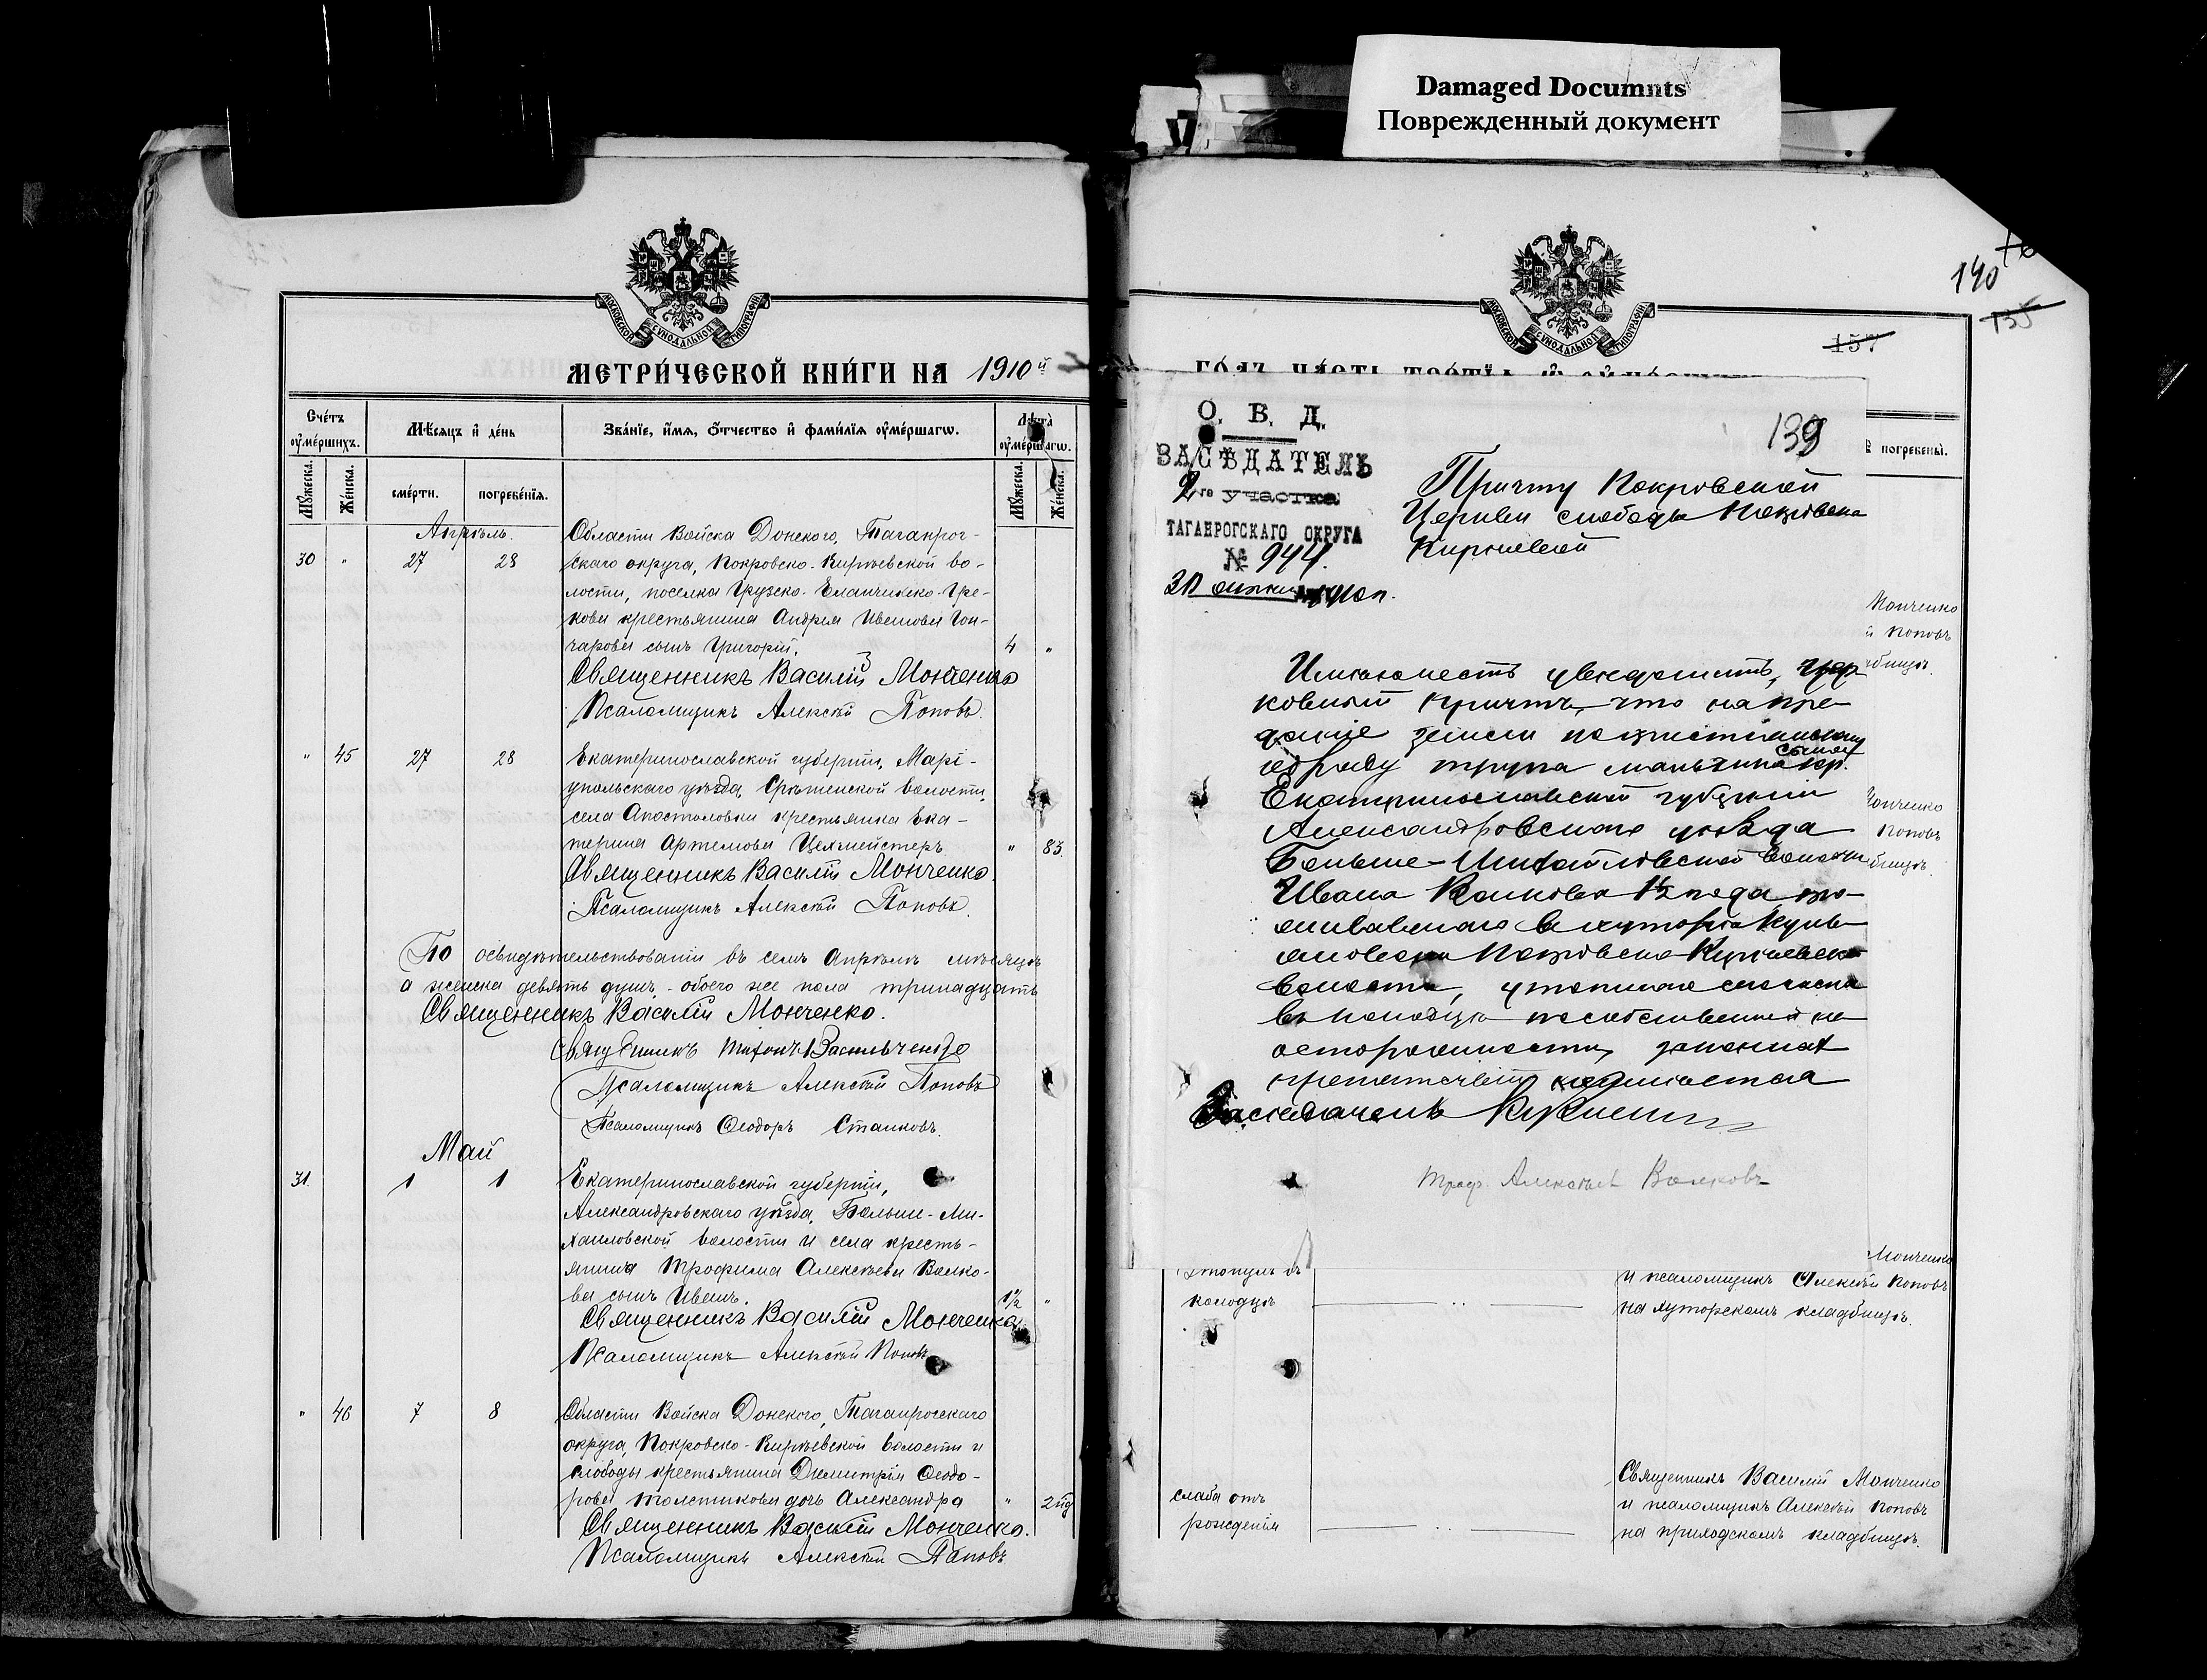 Damaged Documnts
Поврежденный документ
МОСКОВСКОЙ СУНОДАЛЬНОЙ ТИПОГРАФІИ
МЕТРИ́ЧЕСКОЙ КНИ́ГИ НА 1910й
Сче́тъ оумершихъ.
Мѣсяцъ и де́нь
Зва́ніе, и́мя, о́тчество и фами́лія оуме́ршагѡ.
Лѣта оуме́ршагѡ.
Мꙋжеска.
Же́нска.
сме́рти.
погребе́нія.
Мꙋжеска.
Же́нска.
Апрѣль.
Области Войска Донского, Таганрог-
30 " 27 28 скаго округа, Покровско-Кирѣевской во-
лости, поселка Грузско-Еланчинско-Гре-
кова крестьянина Андрея Иванова Гон-
чарова сынъ Григорій. 4 "
Священникъ Василій Монченко
Псаломщикъ Алексѣй Поповъ.
" 45 27 28 Екатеринославской губерніи, Марі-
упольскаго уѣзда, Срѣтенской волости,
села Апостоловки крестьянка Ека-
терина Артемова Цехмейстеръ " 83
Священникъ Василій Монченко.
Псаломщикъ Алексѣй Поповъ.
По освидѣтельствованіи въ семъ Апрѣлѣ мѣсяцѣ
а женска девять душъ - обоего же пола тринадцать
Священникъ Василій Монченко.
Священникъ Тихонъ Васильченко
Псаломщикъ Алексѣй Поповъ
Псаломщикъ Ѳеодоръ Станковъ.
Май
31. 1 1 Екатеринославской губерніи,
Александровскаго уѣзда, Больше-Ми-
хайловской волости и села кресть-
янина Трофима Алексѣева Волко-
ва сынъ Иванъ. 1½ "
Священникъ Василій Монченко
Псаломщикъ Алексѣй Поповъ
" 46 7 8 Области Войска Донского, Таганрогскаго
округа, Покровско-Кирѣевской волости и
слободы крестьянина Димитрія Ѳеодо-
рова Толстикова дочь Александра " 2 нд
Священникъ Василій Монченко.
Псаломщикъ Алексѣй Поповъ
МОСКОВСКОЙ СУНОДАЛЬНОЙ ТИПОГРАФІИ
140
135
157
О. В. Д.
ЗАСѢДАТЕЛЬ
2го участка
ТАГАНРОГСКАГО ОКРУГА
№ 944.
139
Причту Покровской
Церкви слободы Покровско
Кирѣевской
Имѣю честь увѣдомить, цер
ковный причтъ, что на пре-
даніе земли по христіанскому
обряду трупа мальчика сына кр.
Екатеринославской губерніи
Александровскаго уѣзда
Больше-Михайловской волости
Ивана Волкова 1½ года, про-
живавшаго в хуторѣ
Покровско-Кирѣевской
волости,
в колодцѣ по собственной не
осторожности,
препятствій не имѣется
Засѣдатель
Троф. Алексѣев Волковъ
погребены.
Монченко
й Поповъ
дбищѣ.
Монченко
Поповъ
бищѣ.
Монченко
утонулъ въ
колодцѣ
и псаломщикъ Алексѣй Поповъ
на хуторскомъ кладбищѣ.
слаба отъ
рожденія
Священникъ Василій Монченко
и псаломщикъ Алексѣй Поповъ
на приходскомъ кладбищѣ.